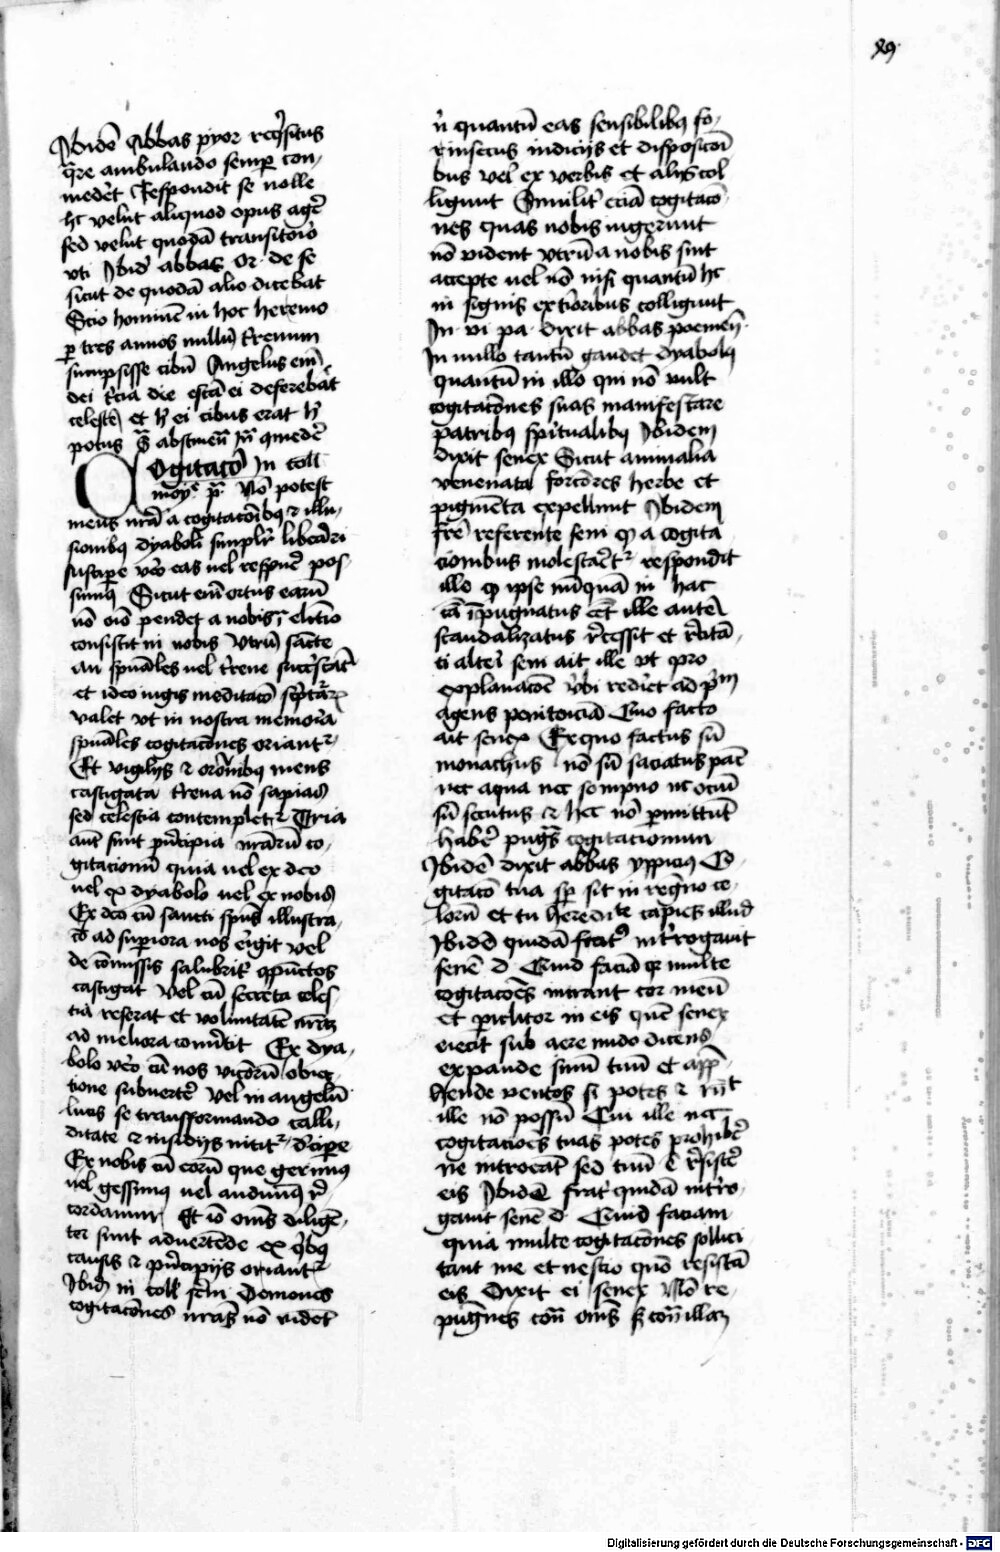 89
Ibidē Abbas pyor reqͥsitus
qͣre ambulando semꝑ con-
medet Respondit se nolle
hͨ velut aliquod opus agē
sed velut quodā transitoriū
vti Ibid abbas Or de se
sicut de quodā alio dicebat
Scio hominē in hoc heremo
ꝑ tres annos nullū terenum
sumpsisse cibū Angelus eim̄
dei tercia die escā ei deferebāt
celestē et hͦ ei cibus erat hͦ
potus
Cogitacō In coll
moyͥ pͥ Nō potest
mens nrā a cogitacōibꝫ ⁊ illu-
sionibꝫ dyaboli simplr liberari
suscipe vͦo eas uel respuē pos-
sumꝫ Sicut eim̄ ortus earū
nō oīo pendet a nobis ͥ electio
consistit in nobis vtrum sancte
an spūales uel terene succrescāt
et ideo iugis meditacō scͥptār
valet vt in nostra memoria
spūales cogitacōnes oriantᷣ
Et vigilijs ⁊ orōnibꝫ mens
castigata terena nō sapiad
sed celestia contempletᷣ Tria
aut̄ sunt pͥncipia nrārū co-
gitacionū quia uel ex deo
uel ex dyabolo uel ex nobis
Ex deo cū sancti spūs illustra-
cō ad superiora nos erigit vel
de cōmissis salubrit ꝯpūctos
castigat Vel cū secreta celes-
tia reserat et voluntatē nrāꝫ
ad meliora conūtit Ex dya-
bolo vͦo cū nos viciorū obiec-
tione subuertē vel in angelū
lucis se transformando calli-
ditate ⁊ insidijs nititᷣ decipe
Ex nobis cū eorū que gerimus
uel gessimus uel audiuimꝫ re-
cordamur Et iō om̄s diligē-
ter sunt aduertēde ex qͥbꝫ
causis ⁊ pͥncipijs oriantᷣ
Ibid in coll serē Demones
cogitacōnes nrās nō vidēt
nͥ quantū eas sensibilibꝫ fo-
rinsecus indicijs et disposicōi
bus vel ex verbis et alijs col
ligunt Similit eciā cogitacō-
nes quas nobis ingerunt
nō vident vtrū a nobis sint
accepte uel nō nisi quantū hͨ
in signis exterioribus colligunt
In vi pa dixit abbas poemeȳ
In nullo tantū gaudet dyabolꝫ
quantū in illo qui nō vult
cogitacōnes suas manifestare
patribꝫ spūtualibꝫ Ibidem
dixit senex Sicut animalia
venenata forciores herbe et
pigmēta expellunt Ibidem
frē referente seni ꝙ a cogita
cionibus molestaretᷣ respondit
ille ꝙ ipse nūquā in hac
cā īpugnatus eēt ille autē
scandalizatus recessit et recitā-
ti alteri seni ait ille vt pro
explanacōe v̄bi rediret ad pͥm
agens penitenciā Quo facto
ait senex Ex quo factus sū
monachus nō sū saciatus pāe
nec aqua nec sompno nec ociū
sū secutus ⁊ hec nō ꝑmittūt
habē pugͣs cogitacionum
Ibidē dixit abbas yppicius Co-
gitacō tua sꝑ sit in regͦno ce-
lorū et tu heredite capies illud
Ibidē quidā frat intrōgauit
senē d Quid faciā qꝛ multe
cogitacōes intrant cor meū
et periclitor in eis quē senex
eiecit sub aere nudo dicens
expande sinū tuū et app̄-
hende ventos si potes ⁊ rn̄t
ille nō possū Cui ille nec
cogitacioēs tuas potes prohibē
ne introeāt sed tuū ē resistē
eis Ibidē frat quidā intro-
gauit senē d Quid faciam
quia multe cogitacōnes sollici
tant me et nescio quō resistā
eis Dixit ei senex Nō re-
pugnes con̄ om̄s s con̄ illam
Digitalisierung gefördert durch die Deutsche Forschungsgemeinschaft - DFG